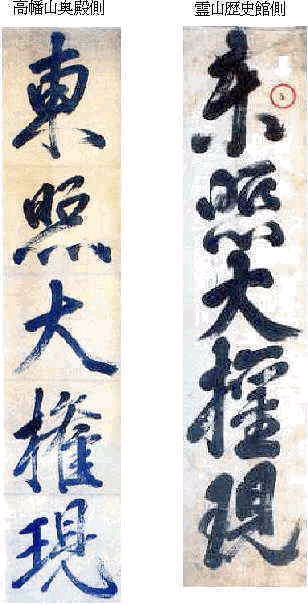 高幡山奥殿側
霊山歴史館側
東照大権現
東照大権現